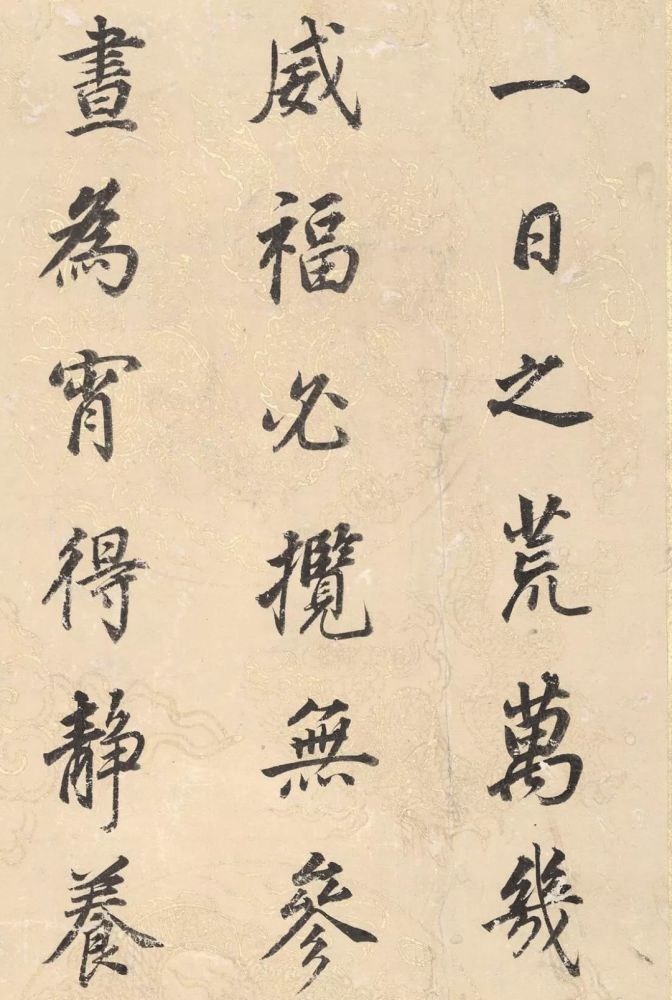 一日之荒萬幾
威福必攬無參
晝為宵得靜養